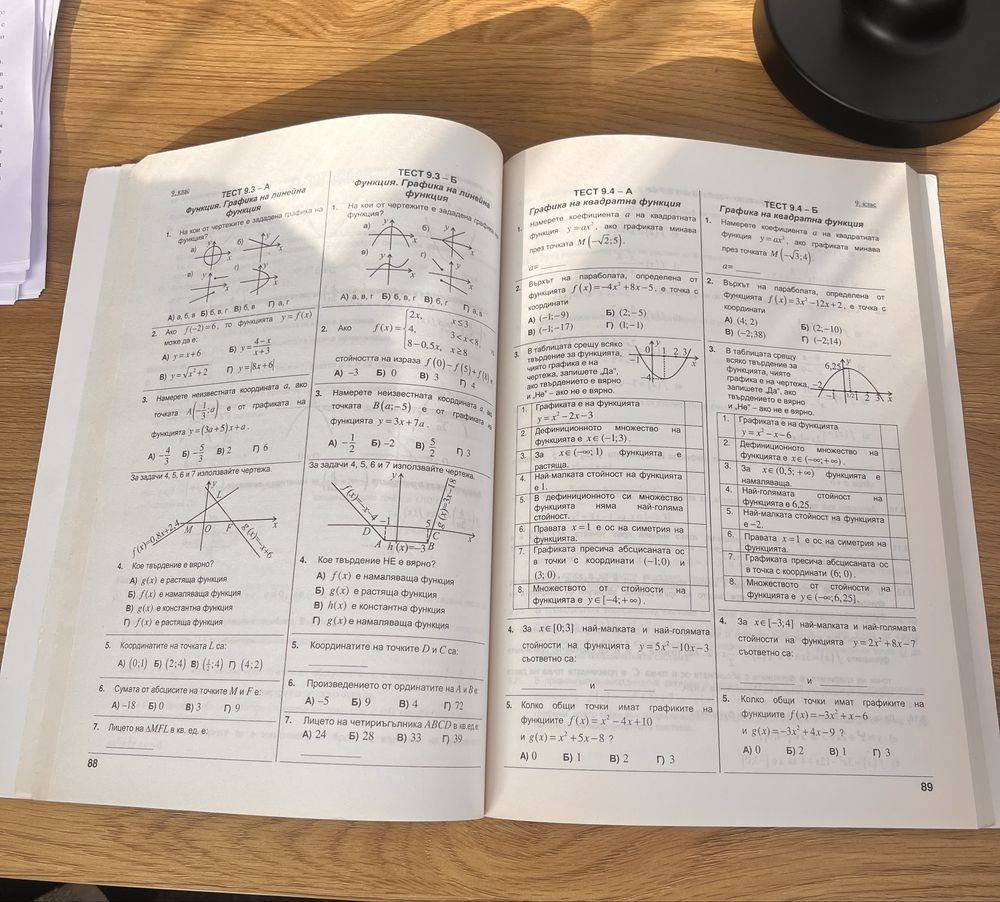 9. клас
ТЕСТ 9.3 – А
Функция. Графика на линейна
функция
1. На кои от чертежите е зададена графика на
функция?
а) б)
в) г)
А) а, б, в Б) б, в, г В) б, в Г) а, г
2. Ако f(−2)=6, то функцията y=f(x)
може да е:
А) y=x+6 Б) y=(4−x)/(x+3)
В) y=√x²+2 Г) y=|8x+6|
3. Намерете неизвестната координата a, ако
точката A(−1/3;a) е от графиката на
функцията y=(3a+5)x+a.
А) −4/3 Б) −5/3 В) 2 Г) 6
За задачи 4, 5, 6 и 7 използвайте чертежа.
y
L
M O F x
f(x)=0,8x+2,4
g(x)=−x+6
4. Кое твърдение е вярно?
А) g(x) е растяща функция
Б) f(x) е намаляваща функция
В) g(x) е константна функция
Г) f(x) е растяща функция
5. Координатите на точката L са:
А) (0;1) Б) (2;4) В) (½;4) Г) (4;2)
6. Сумата от абсцисите на точките M и F е:
А) −18 Б) 0 В) 3 Г) 9
7. Лицето на ΔMFL в кв. ед. е:
88
ТЕСТ 9.3 – Б
Функция. Графика на линейна
функция
1. На кои от чертежите е зададена графика на
функция?
а) б)
в) г)
А) а, в, г Б) б, в, г В) б, г Г) а, в
2. Ако f(x)= { 2x, x≤3
4, 3<x<8,
8−0,5x, x≥8
стойността на израза f(0)−f(5)+f(8)
А) −3 Б) 0 В) 3 Г) 4
3. Намерете неизвестната координата a, ако
точката B(a;−5) е от графиката
функцията y=3x+7a.
А) −1/2 Б) −2 В) 5/2 Г) 3
За задачи 4, 5, 6 и 7 използвайте чертежа.
y
f(x)=−x−4
g(x)=3x−18
−1 5
D C x
A h(x)=−3 B
4. Кое твърдение НЕ е вярно?
А) f(x) е намаляваща функция
Б) g(x) е растяща функция
В) h(x) е константна функция
Г) g(x) е намаляваща функция
5. Координатите на точките D и C са:
6. Произведението от ординатите на A и B е:
А) −5 Б) 9 В) 4 Г) 72
7. Лицето на четириъгълника ABCD в кв.ед.е:
А) 24 Б) 28 В) 33 Г) 39
ТЕСТ 9.4 – А
Графика на квадратна функция
1. Намерете коефициента a на квадратната
функция y=ax², ако графиката минава
през точката M(−√2;5).
a=
2. Върхът на параболата, определена от
функцията f(x)=−4x²+8x−5, е точка с
координати
А) (−1;−9) Б) (2;−5)
В) (−1;−17) Г) (1;−1)
3. В таблицата срещу всяко
твърдение за функцията,
чиято графика е на
чертежа, запишете „Да“,
ако твърдението е вярно
и „Не“ – ако не е вярно.
y
−1 0 1 2 3 x
−4
1. Графиката е на функцията
y=x²−2x−3
2. Дефиниционното множество на
функцията е x∈(−1;3).
3. За x∈(−∞;1) функцията е
растяща.
4. Най-малката стойност на функцията
е 1.
5. В дефиниционното си множество
функцията няма най-голяма
стойност.
6. Правата x=1 е ос на симетрия на
функцията.
7. Графиката пресича абсцисната ос
в точки с координати (−1;0) и
(3;0).
8. Множеството от стойности на
функцията е y∈[−4;+∞).
4. За x∈[0;3] най-малката и най-голямата
стойности на функцията y=5x²−10x−3
съответно са:
и
5. Колко общи точки имат графиките на
функциите f(x)=x²−4x+10
и g(x)=x²+5x−8 ?
А) 0 Б) 1 В) 2 Г) 3
9. клас
ТЕСТ 9.4 – Б
Графика на квадратна функция
1. Намерете коефициента a на квадратната
функция y=ax², ако графиката минава
през точката M(−√3;4).
a=
2. Върхът на параболата, определена от
функцията f(x)=3x²−12x+2, е точка с
координати
А) (4; 2) Б) (2;−10)
В) (−2;38) Г) (−2;14)
3. В таблицата срещу
всяко твърдение за
функцията, чиято
графика е на чертежа,
запишете „Да“, ако
твърдението е вярно
и „Не“ – ако не е вярно.
6,25 y
−2 −1 1/2 1 2 3 x
1. Графиката е на функцията
y=x²−x−6.
2. Дефиниционното множество на
функцията е x∈(−∞;+∞).
3. За x∈(0,5;+∞) функцията е
намаляваща.
4. Най-голямата стойност на
функцията е 6,25.
5. Най-малката стойност на функцията
е −2.
6. Правата x=1 е ос на симетрия на
функцията.
7. Графиката пресича абсцисната ос
в точка с координати (6; 0).
8. Множеството от стойности на
функцията е y∈(−∞;6,25].
4. За x∈[−3;4] най-малката и най-голямата
стойности на функцията y=2x²+8x−7
съответно са:
и
5. Колко общи точки имат графиките на
функциите f(x)=−3x²+x−6
и g(x)=−3x²+4x−9 ?
А) 0 Б) 2 В) 1 Г) 3
89